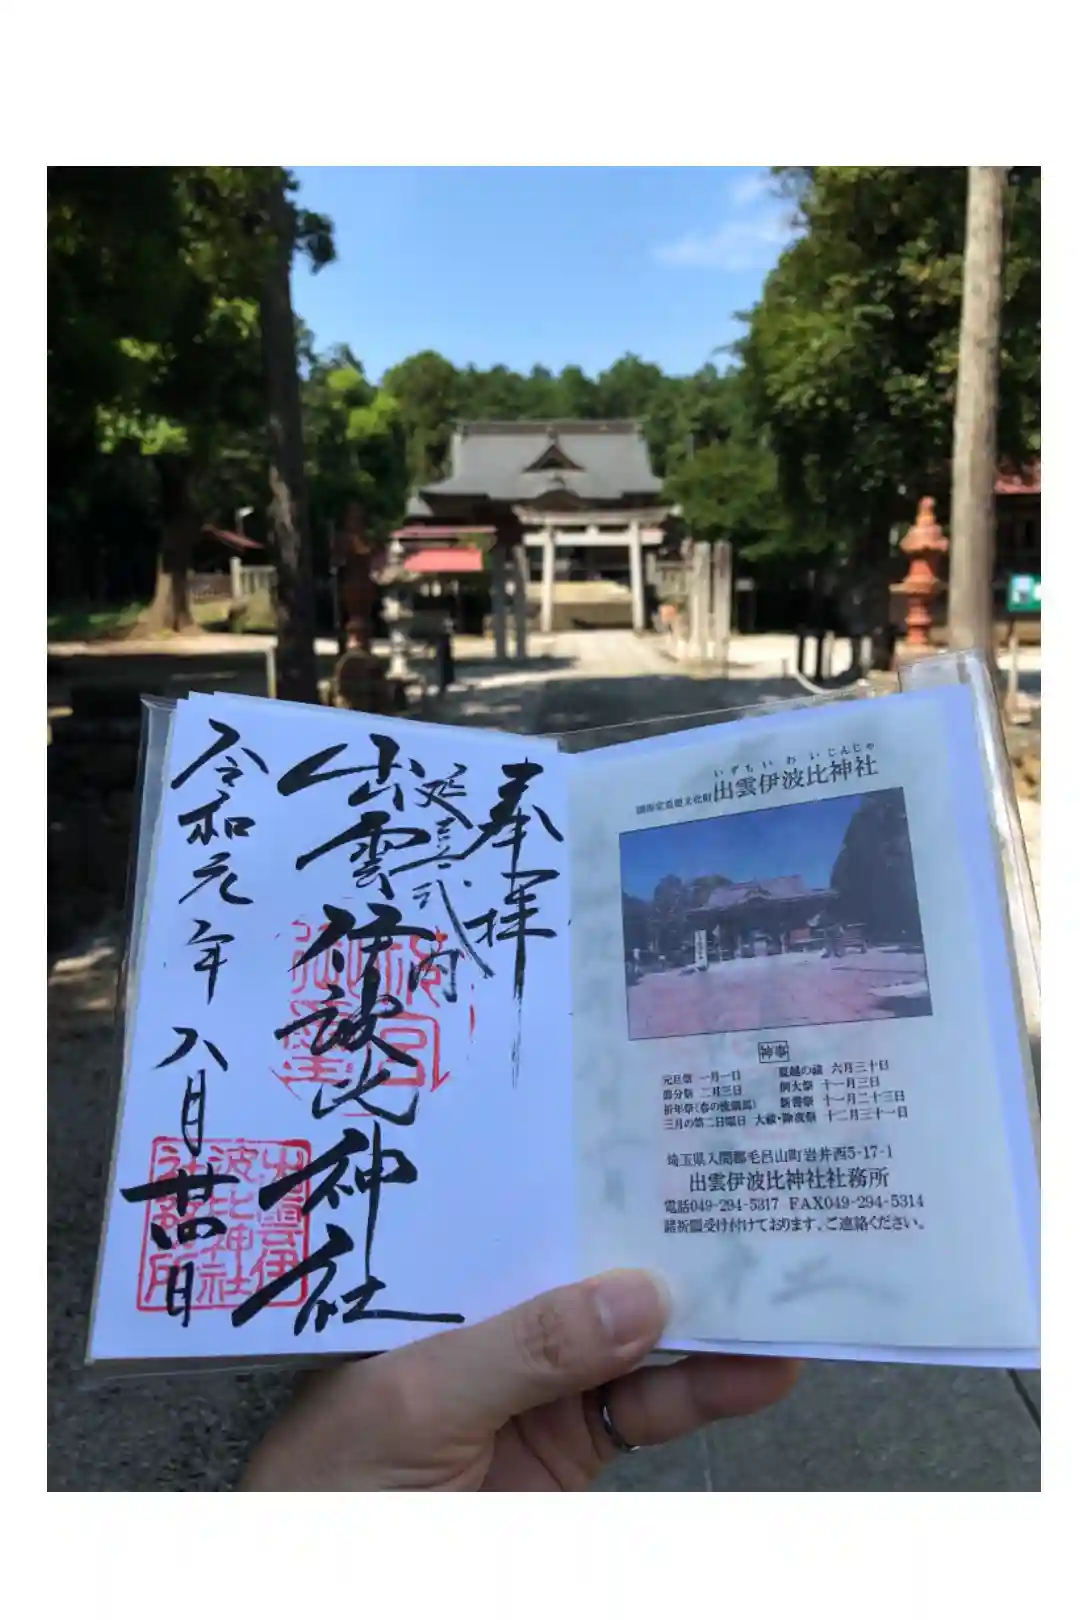 奉拝
延喜式内
出雲伊波比神社
令和元年八月廿四日
出雲伊
波比神社
社務所
いずもいわいじんじゃ
国指定重要文化財 出雲伊波比神社
神事
元旦祭 一月一日
節分祭 二月三日
祈年祭(春の流鏑馬)
三月の第二日曜日
夏越の祓 六月三十日
例大祭 十一月三日
新嘗祭 十一月二十三日
大祓・除夜祭 十二月三十一日
埼玉県入間郡毛呂山町岩井西5-17-1
出雲伊波比神社社務所
電話049-294-5317 FAX049-294-5314
諸祈願受け付けております。ご連絡ください。